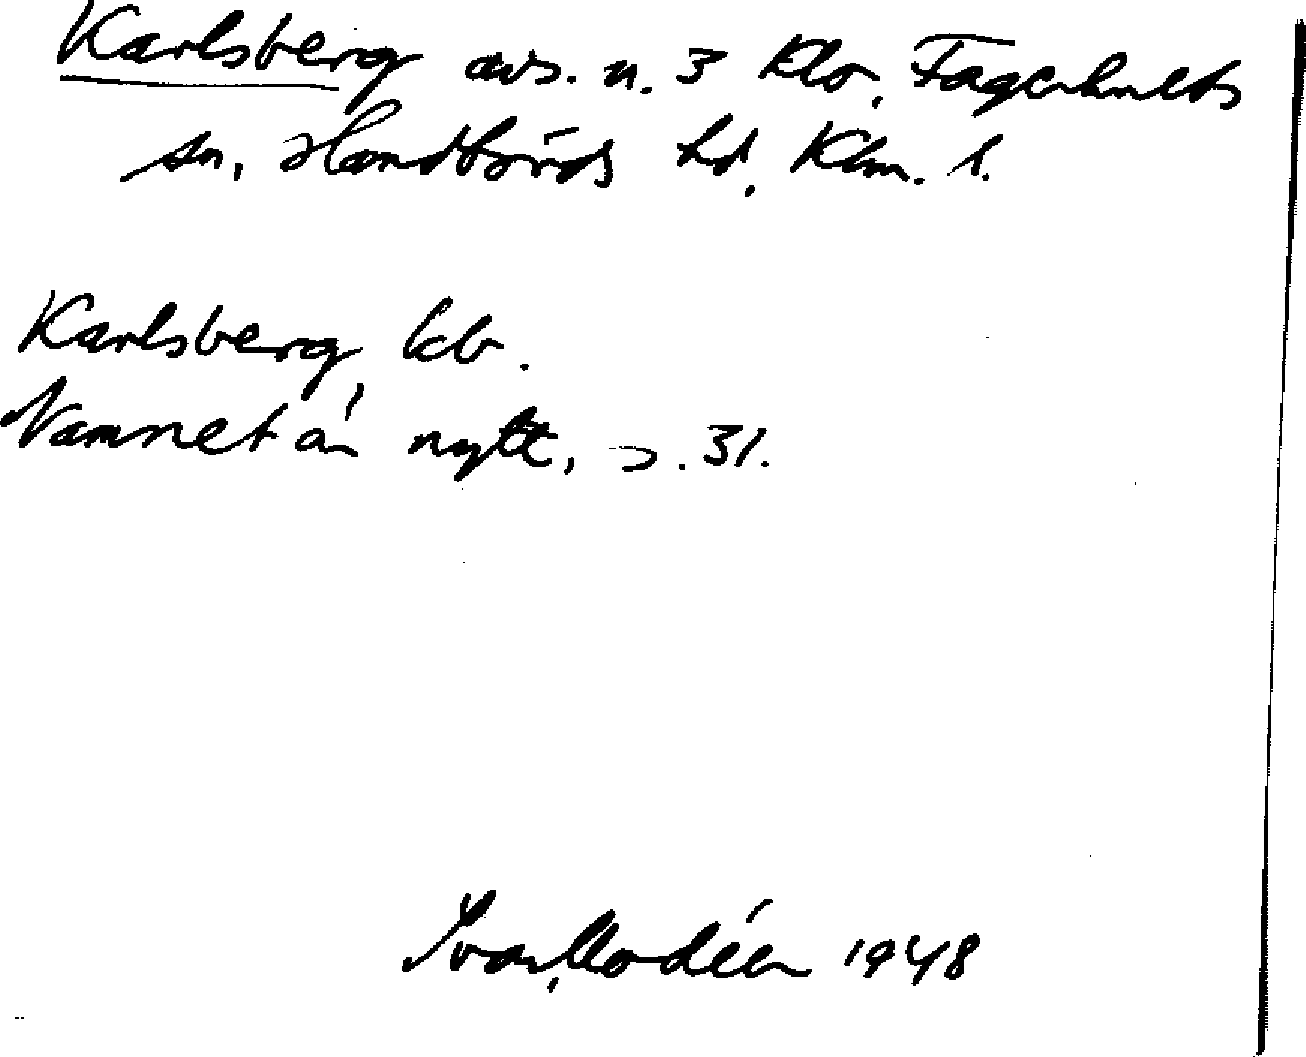 Karlsberg avs. u. 3 Klo, Fagerhults
sn, Handbörds hd. Klm. l.
Karlsberg, kb.
Namnet är nytt, s. 31.
Ivar Modéer 1948